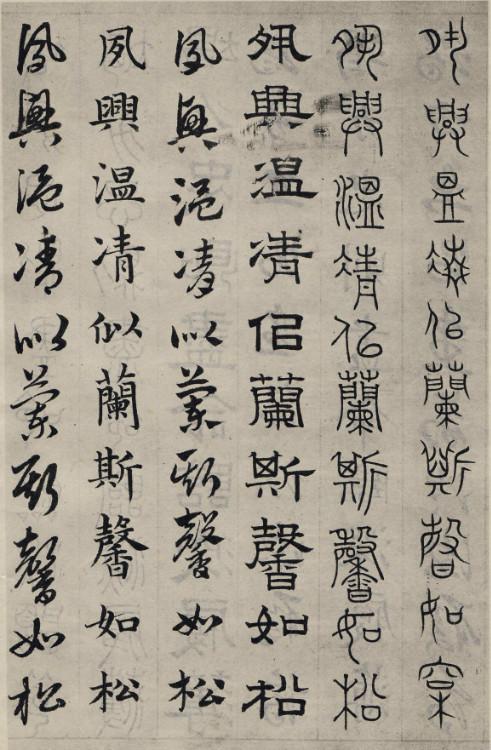 夙興温凊似蘭斯馨如松
夙興温凊似蘭斯馨如松
夙興温凊似蘭斯馨如松
夙興温凊似蘭斯馨如松
夙興温凊似蘭斯馨如松
夙興温凊似蘭斯馨如松